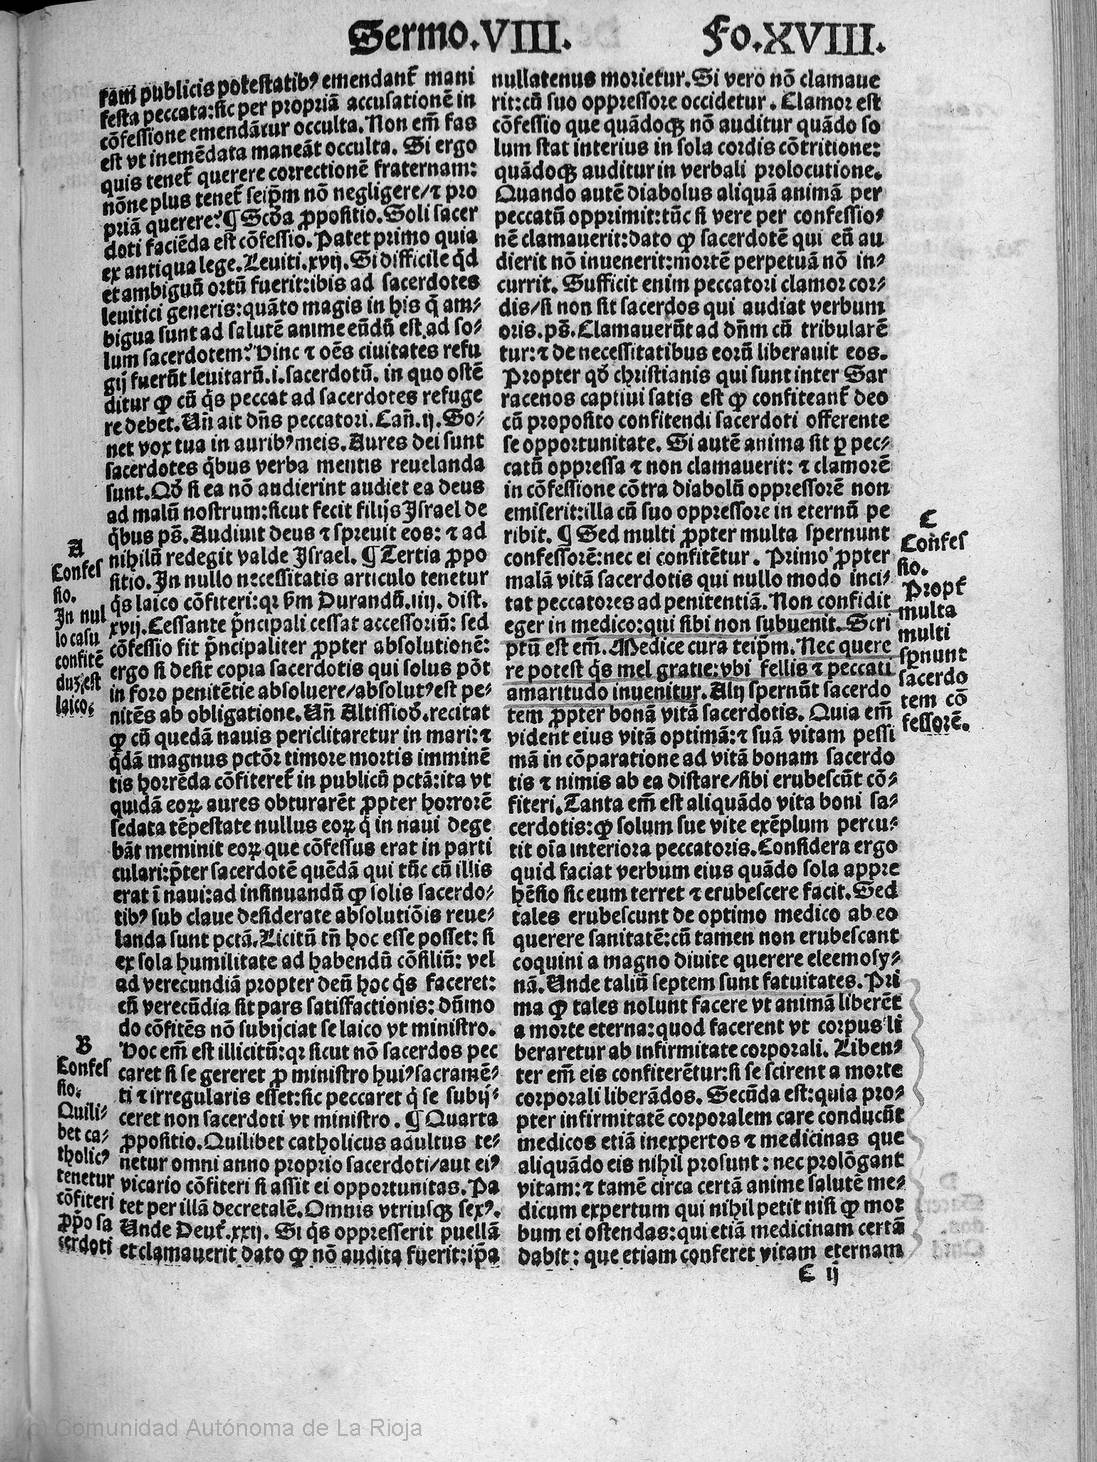 Sermo.VIII. Fo.XVIII.
ram publicis potestatibꝰ emendant᷑ mani
festa peccata:sic per propriā accusationē in
cōfessione emendātur occulta. Non em̄ fas
est vt inemēdata maneāt occulta. Si ergo
quis tenet᷑ querere correctionē fraternam:
nōne plus tenet᷑ seip̄m nō negligere/⁊ pro
priā querere? ¶ Scd̄a ꝓpositio. Soli sacer
doti faciēda est cōfessio. Patet primo quia
ex antiqua lege. Leuiti.xvij. Si difficile qd̄
et ambiguū ortū fuerit:ibis ad sacerdotes
leuitici generis:quāto magis in his q̄ am⸗
bigua sunt ad salutē anime eūdū est ad so⸗
lum sacerdotem? Hinc ⁊ oēs ciuitates refu
gij fuerūt leuitarū.i.sacerdotū. in quo ostē
ditur ꝙ cū q̄s peccat ad sacerdotes refuge
re debet. Un̄ ait dn̄s peccatori. Can̄.ij. So⸗
net vox tua in auribꝰ meis. Aures dei sunt
sacerdotes q̄bus verba mentis reuelanda
sunt. Qd̄ si ea nō audierint audiet ea deus
ad malū nostrum:sicut fecit filijs Israel de
q̄bus ps̄. Audiuit deus ⁊ spreuit eos: ⁊ ad
nihilū redegit valde Israel. ¶ Tertia ꝓpo
sitio. In nullo necessitatis articulo tenetur
q̄s laico cōfiteri:qꝛ ẜm Durandū.iiij. dist.
xvij. Cessante p̄ncipali cessat accessoriū: sed
cōfessio fit p̄ncipaliter ꝓpter absolutionē:
ergo si desit copia sacerdotis qui solus pōt
in foro penitētie absoluere/absolutꝰ est pe⸗
nitēs ab obligatione. Un̄ Altissiod̄.recitat
ꝙ cū quedā nauis periclitaretur in mari:⁊
q̄dā magnus pctōr timore mortis imminē
tis horrēda cōfiteret᷑ in publicū pctā:ita vt
quidā eoꝝ aures obturarēt ꝓpter horrorē
sedata tēpestate nullus eoꝝ q̄ in naui dege
bāt meminit eoꝝ que cōfessus erat in parti
culari:p̄ter sacerdotē quēdā qui tūc cū illis
erat ī naui:ad insinuandū ꝙ solis sacerdo⸗
tibꝰ sub claue desiderate absolutiōis reue⸗
landa sunt pctā. Licitū tn̄ hoc esse posset: si
ex sola humilitate ad habendū cōsiliū: vel
ad verecundiā propter deū hoc q̄s faceret:
cū verecūdia sit pars satisfactionis: dūmo
do cōfitēs nō subijciat se laico vt ministro.
Hoc em̄ est illicitū:qꝛ sicut nō sacerdos pec
caret si se gereret ꝓ ministro huiꝰ sacramē⸗
ti ⁊ irregularis esset:sic peccaret q̄ se subij⸗
ceret non sacerdoti vt ministro. ¶ Quarta
ꝓpositio. Quilibet catholicus adultus te⸗
netur omni anno proprio sacerdoti/aut eiꝰ
vicario cōfiteri si assit ei opportunitas. Pa
tet per illā decretalē. Omnis vtriusqꝫ sexꝰ.
Unde Deut᷑.xxij. Si q̄s oppresserit puellā
et clamauerit dato ꝙ nō audita fuerit:ip̄a
A
Confes
sio.
In nul
lo casu
confitē
duꝫ est
laico.
B
Confes
sio.
Quili⸗
bet ca⸗
tholicꝰ
tenetur
cōfiteri
ꝓp̄o sa
cerdoti
nullatenus morietur. Si vero nō clamaue
rit:cū suo oppressore occidetur. Clamor est
cōfessio que quādoqꝫ nō auditur quādo so
lum stat interius in sola cordis cōtritione:
quādoqꝫ auditur in verbali prolocutione.
Quando autē diabolus aliquā animā per
peccatū opprimit:tūc si vere per confessio⸗
nē clamauerit:dato ꝙ sacerdotē qui eū au
dierit nō inuenerit:mortē perpetuā nō in⸗
currit. Sufficit enim peccatori clamor cor⸗
dis/si non sit sacerdos qui audiat verbum
oris.ps̄. Clamauerūt ad dn̄m cū tribularē
tur:⁊ de necessitatibus eorū liberauit eos.
Propter qd̄ christianis qui sunt inter Sar
racenos captiui satis est ꝙ confiteant᷑ deo
cū proposito confitendi sacerdoti offerente
se opportunitate. Si autē anima sit ꝑ pec⸗
catū oppressa ⁊ non clamauerit: ⁊ clamorē
in cōfessione cōtra diabolū oppressorē non
emiserit:illa cū suo oppressore in eternū pe
ribit. ¶ Sed multi ꝓpter multa spernunt
confessorē:nec ei confitētur. Primo ꝓpter
malā vitā sacerdotis qui nullo modo inci⸗
tat peccatores ad penitentiā. Non confidit
eger in medico:qui sibi non subuenit. Scri
ptū est em̄. Medice cura teip̄m. Nec quere
re potest q̄s mel gratie:vbi fellis ⁊ peccati
amaritudo inuenitur. Alij spernūt sacerdo
tem ꝓpter bonā vitā sacerdotis. Quia em̄
vident eius vitā optimā:⁊ suā vitam pessi
mā in cōparatione ad vitā bonam sacerdo
tis ⁊ nimis ab ea distare/sibi erubescūt cō⸗
fiteri. Tanta em̄ est aliquādo vita boni sa⸗
cerdotis:ꝙ solum sue vite exēplum percu⸗
tit oīa interiora peccatoris. Considera ergo
quid faciat verbum eius quādo sola appre
hēsio sic eum terret ⁊ erubescere facit. Sed
tales erubescunt de optimo medico ab eo
querere sanitatē:cū tamen non erubescant
coquini a magno diuite querere eleemosy⸗
nā. Unde taliū septem sunt fatuitates. Pri
ma ꝙ tales nolunt facere vt animā liberēt
a morte eterna:quod facerent vt corpus li
beraretur ab infirmitate corporali. Liben⸗
ter em̄ eis confiterētur:si se scirent a morte
corporali liberādos. Secūda est:quia pro⸗
pter infirmitatē corporalem care conducūt
medicos etiā inexpertos ⁊ medicinas que
aliquādo eis nihil prosunt: nec prolōgant
vitam:⁊ tamē circa certā anime salutē me⸗
dicum expertum qui nihil petit nisi ꝙ mor
bum ei ostendas:qui etiā medicinam certā
dabit: que etiam conferet vitam eternam
C
Confes
sio.
Propt᷑
multa
multi
sp̄nunt
sacerdo
tem cō
fessorē.
C ij
(c) Comunidad Autónoma de La Rioja